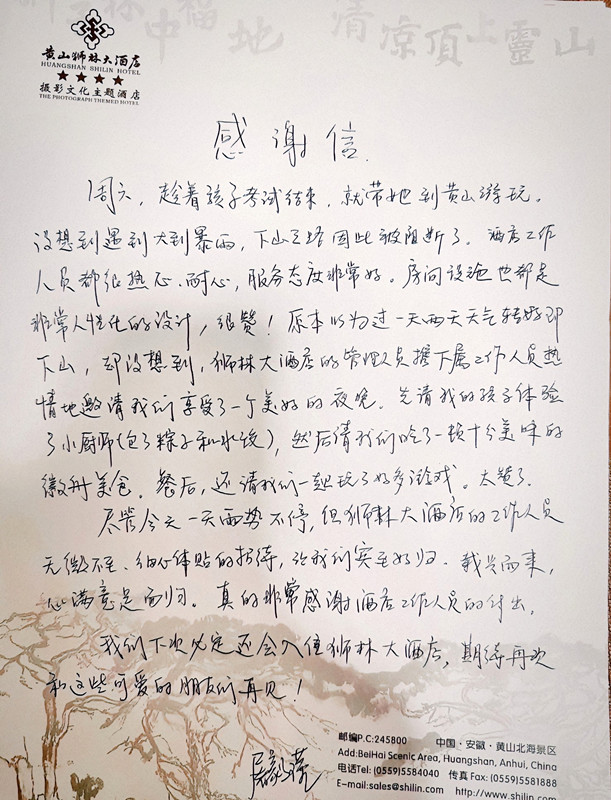 中福地 清凉頂上靈山
黄山狮林大酒店
HUANGSHAN SHILIN HOTEL
★★★★
摄影文化主题酒店
THE PHOTOGRAPH THEMED HOTEL
感谢信.
周六，趁着孩子考试结束，就带她到黄山游玩。
没想到遇到大到暴雨，下山之路因此被阻断了。酒店工作
人员都很热心、耐心，服务态度非常好。房间设施也都是
非常人性化的设计，很赞！原本以为过一天两天天气转好即
下山，却没想到，狮林大酒店的管理人员携下属工作人员热
情地邀请我们享受了一个美好的夜晚。先请我的孩子体验
了小厨师(包了粽子和水饺)，然后请我们吃了一顿十分美味的
徽州美食。餐后，还请我们一起玩了好多游戏。太赞了.
尽管今天一天雨势不停，但狮林大酒店的工作人员
无微不至、细心体贴的招待，让我们宾至如归。载兴而来，
心满意足而归。真的非常感谢酒店工作人员的付出。
我们下次必定还会入住狮林大酒店，期待再次
和这些可爱的朋友们再见！
邮编P.C:245800 中国·安徽·黄山北海景区
Add:BeiHai Scenic Area, Huangshan, Anhui, China
电话Tel:(0559)5584040 传真Fax:(0559)5581888
E-mail:sales@shilin.com http://www.shilin.com